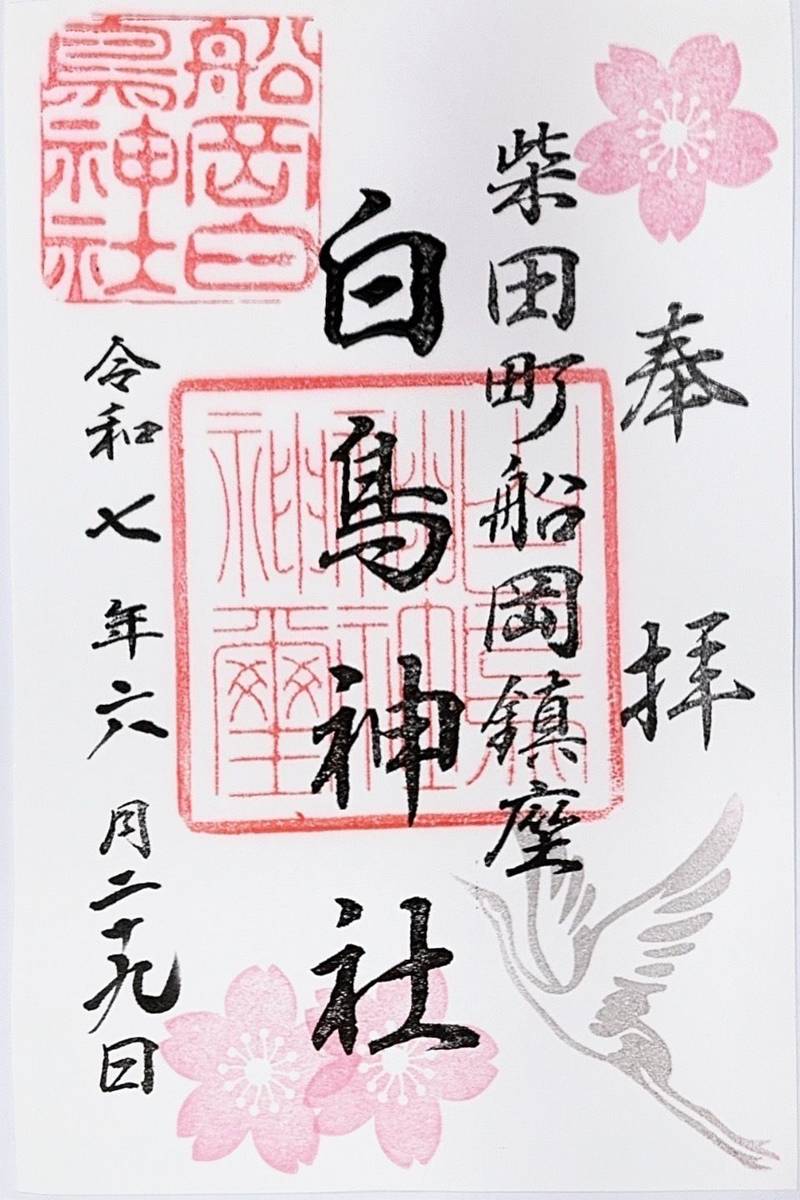 奉拝
柴田町船岡鎮座
白鳥神社
令和七年六月二十九日
船岡白
鳥神社